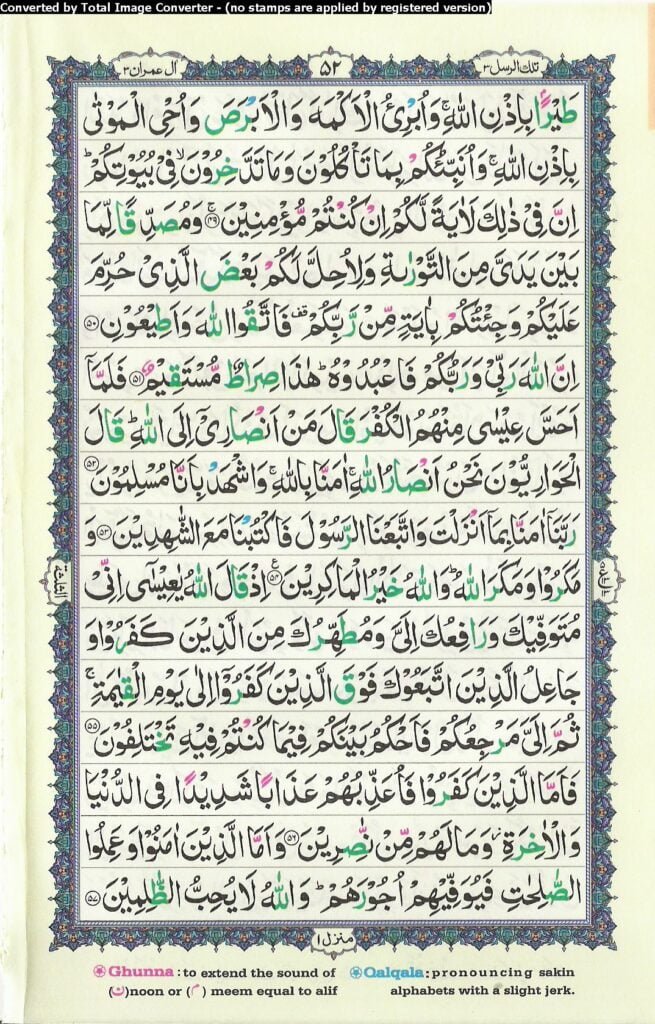 Converted by Total Image Converter - (no stamps are applied by registered version)
تلك الرسل ٣
٥٢
ال عمران ٣
طَيْرًۢا بِاِذْنِ اللّٰهِ ۚ وَاُبْرِئُ الْاَكْمَهَ وَالْاَبْرَصَ وَاُحْیِ الْمَوْتٰى
بِاِذْنِ اللّٰهِ ۚ وَاُنَبِّئُكُمْ بِمَا تَاْكُلُوْنَ وَمَا تَدَّخِرُوْنَ ۙ فِیْ بُيُوْتِكُمْ ؕ
اِنَّ فِیْ ذٰلِكَ لَاٰيَةً لَّكُمْ اِنْ كُنْتُمْ مُّؤْمِنِيْنَ ۚ ﴿٤٩﴾ وَمُصَدِّقًا لِّمَا
بَيْنَ يَدَیَّ مِنَ التَّوْرٰىةِ وَلِاُحِلَّ لَكُمْ بَعْضَ الَّذِیْ حُرِّمَ
عَلَيْكُمْ وَجِئْتُكُمْ بِاٰيَةٍ مِّنْ رَّبِّكُمْ ۟ فَاتَّقُوا اللّٰهَ وَاَطِيْعُوْنِ ﴿٥٠﴾
اِنَّ اللّٰهَ رَبِّیْ وَرَبُّكُمْ فَاعْبُدُوْهُ ؕ هٰذَا صِرَاطٌ مُّسْتَقِيْمٌ ﴿٥١﴾ فَلَمَّاۤ
اَحَسَّ عِيْسٰى مِنْهُمُ الْكُفْرَ قَالَ مَنْ اَنْصَارِیْۤ اِلَى اللّٰهِ ؕ قَالَ
الْحَوَارِيُّوْنَ نَحْنُ اَنْصَارُ اللّٰهِ ۚ اٰمَنَّا بِاللّٰهِ ۚ وَاشْهَدْ بِاَنَّا مُسْلِمُوْنَ ﴿٥٢﴾
رَبَّنَاۤ اٰمَنَّا بِمَاۤ اَنْزَلْتَ وَاتَّبَعْنَا الرَّسُوْلَ فَاكْتُبْنَا مَعَ الشّٰهِدِيْنَ ﴿٥٣﴾ وَ
مَكَرُوْا وَمَكَرَ اللّٰهُ ؕ وَاللّٰهُ خَيْرُ الْمَاكِرِيْنَ ﴿٥٤﴾ اِذْ قَالَ اللّٰهُ يٰعِيْسٰۤى اِنِّیْ
مُتَوَفِّيْكَ وَرَافِعُكَ اِلَیَّ وَمُطَهِّرُكَ مِنَ الَّذِيْنَ كَفَرُوْا وَ
جَاعِلُ الَّذِيْنَ اتَّبَعُوْكَ فَوْقَ الَّذِيْنَ كَفَرُوْۤا اِلٰى يَوْمِ الْقِيٰمَةِ ۚ
ثُمَّ اِلَیَّ مَرْجِعُكُمْ فَاَحْكُمُ بَيْنَكُمْ فِيْمَا كُنْتُمْ فِيْهِ تَخْتَلِفُوْنَ ﴿٥٥﴾
فَاَمَّا الَّذِيْنَ كَفَرُوْا فَاُعَذِّبُهُمْ عَذَابًا شَدِيْدًا فِی الدُّنْيَا
وَالْاٰخِرَةِ ؗ وَمَا لَهُمْ مِّنْ نّٰصِرِيْنَ ﴿٥٦﴾ وَاَمَّا الَّذِيْنَ اٰمَنُوْا وَعَمِلُوا
الصّٰلِحٰتِ فَيُوَفِّيْهِمْ اُجُوْرَهُمْ ؕ وَاللّٰهُ لَا يُحِبُّ الظّٰلِمِيْنَ ﴿٥٧﴾
الثلثة
منزل ١
Ghunna : to extend the sound of
(ن)noon or (م) meem equal to alif
Qalqala: pronouncing sakin
alphabets with a slight jerk.